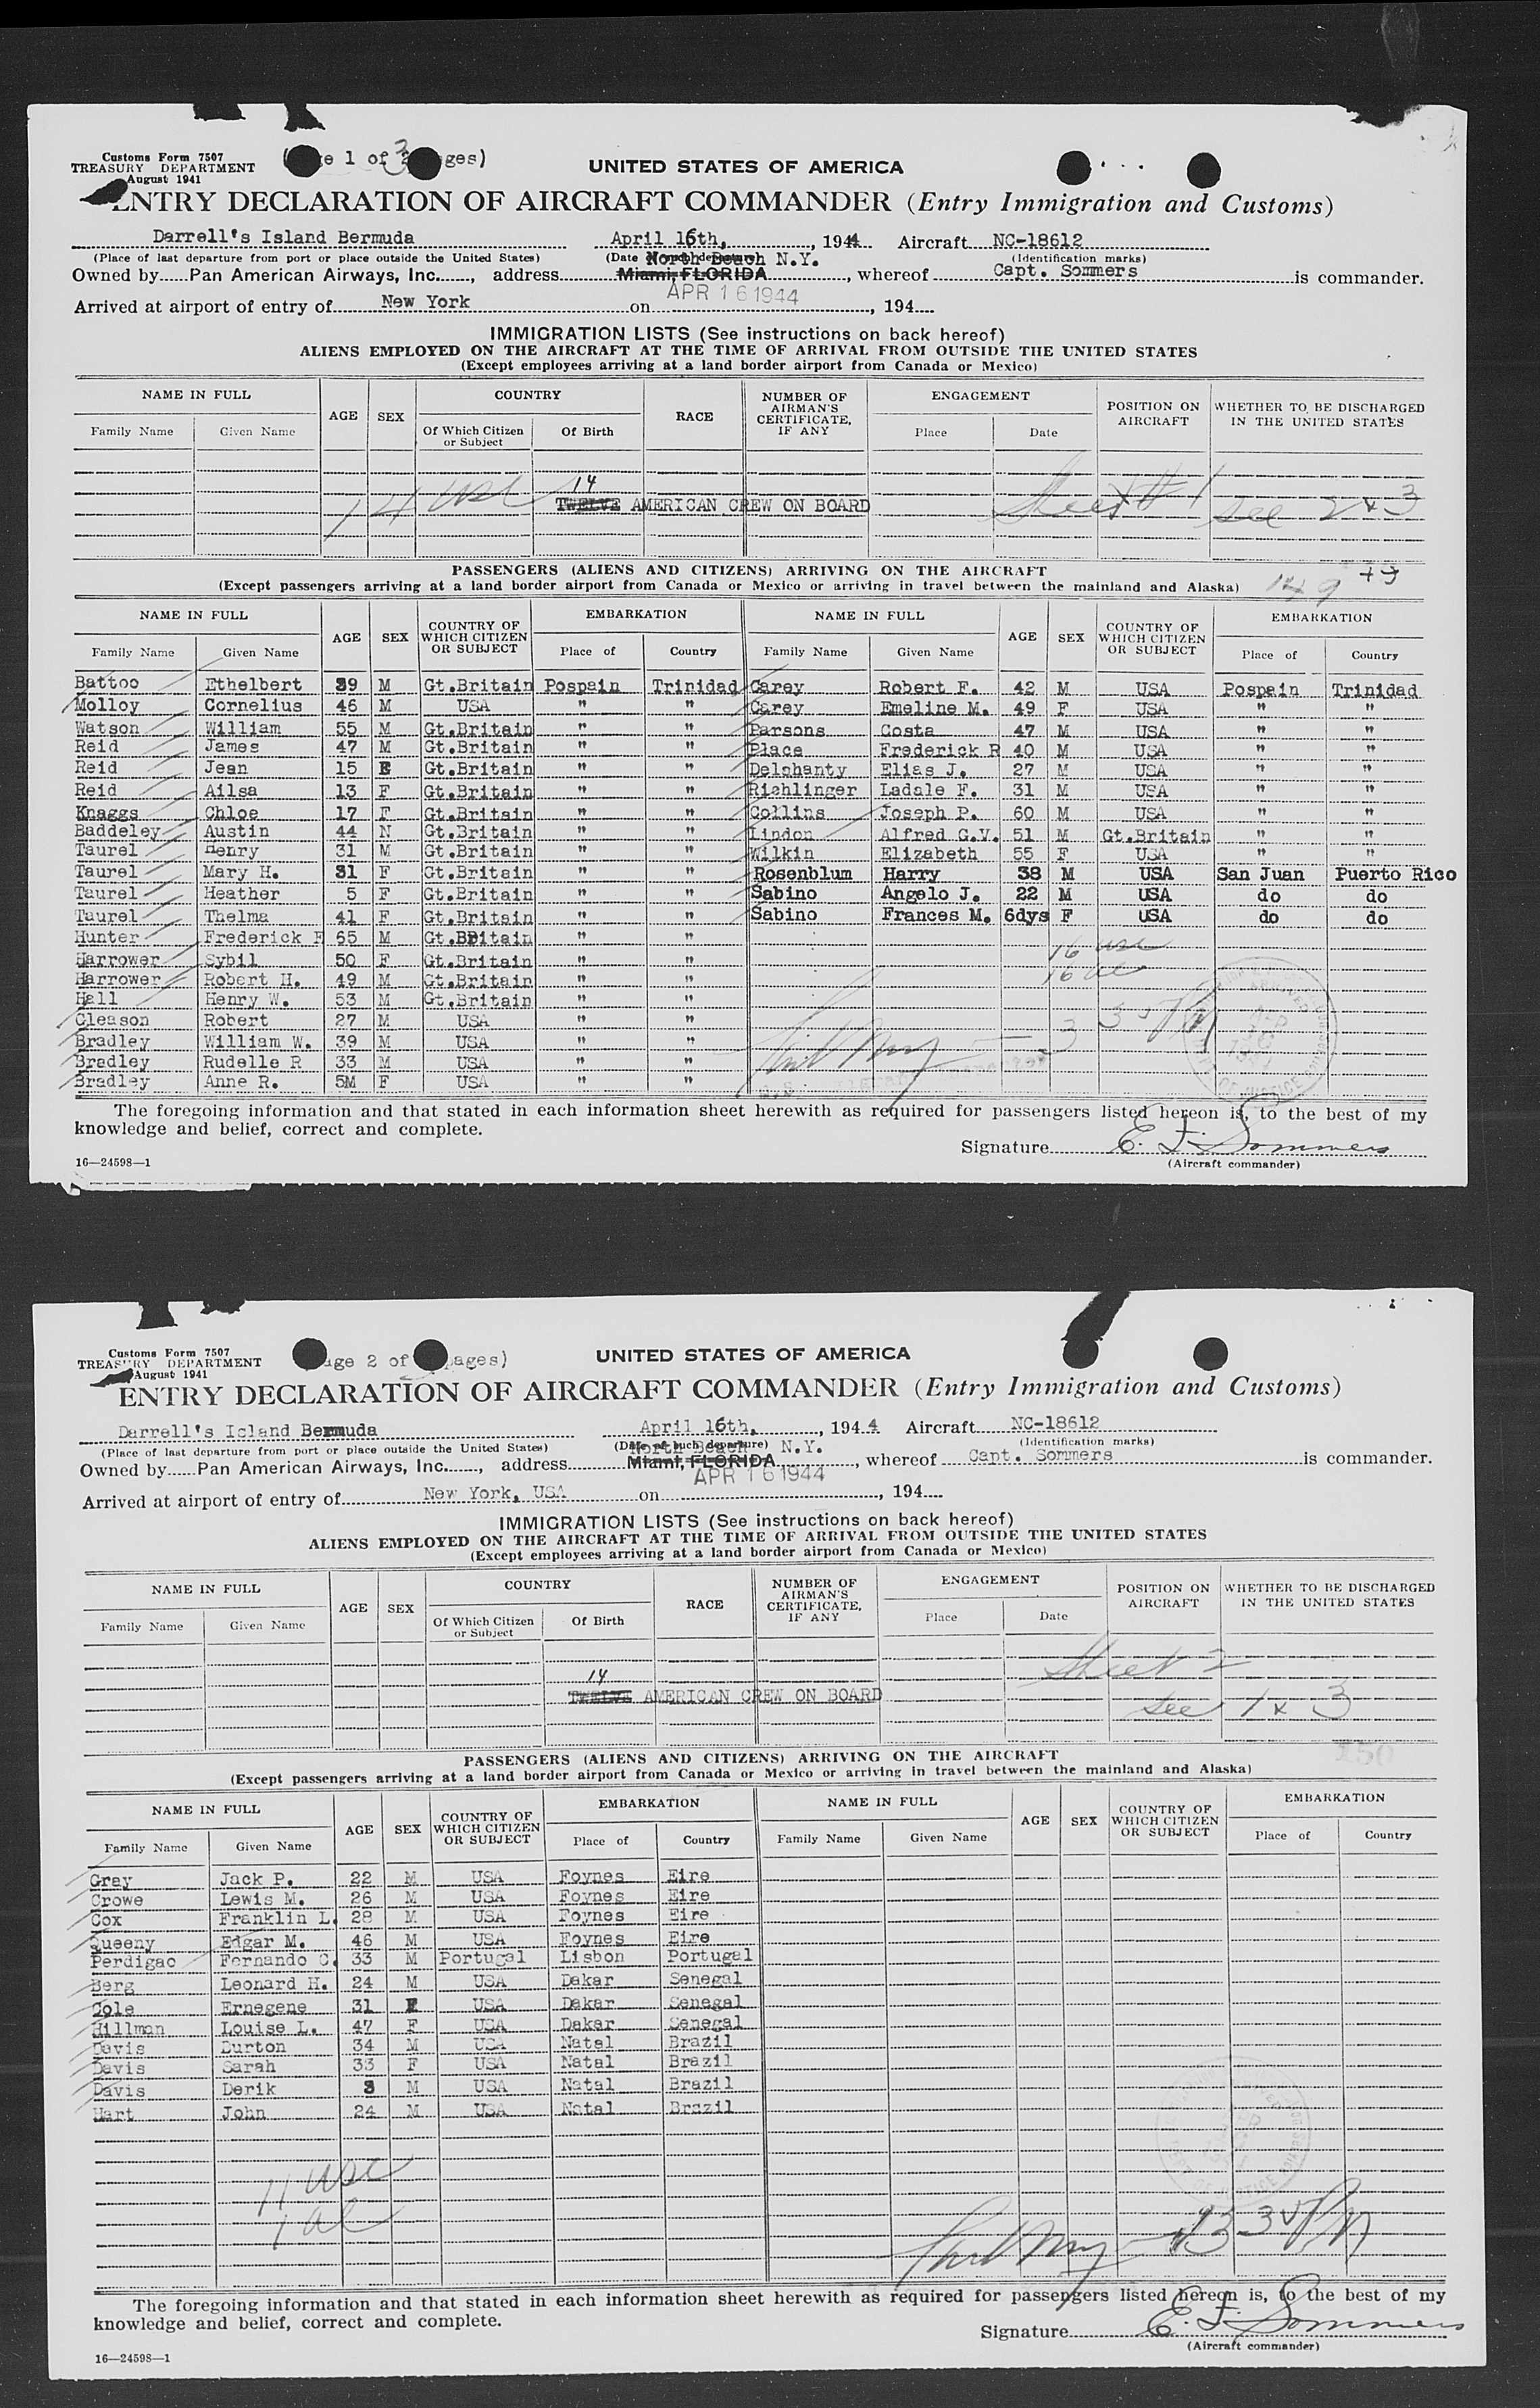 Customs Form 7507
TREASURY DEPARTMENT
August 1941
e 1 of 3 ges)
UNITED STATES OF AMERICA
ENTRY DECLARATION OF AIRCRAFT COMMANDER (Entry Immigration and Customs)
Darrell's Island Bermuda April 16th, , 1944 Aircraft NC-18612
(Place of last departure from port or place outside the United States) (Date of such departure) (Identification marks)
North Beach N.Y.
Owned by Pan American Airways, Inc. , address Miami, FLORIDA , whereof Capt. Sommers is commander.
Arrived at airport of entry of New York on APR 16 1944 , 194
IMMIGRATION LISTS (See instructions on back hereof)
ALIENS EMPLOYED ON THE AIRCRAFT AT THE TIME OF ARRIVAL FROM OUTSIDE THE UNITED STATES
(Except employees arriving at a land border airport from Canada or Mexico)
NAME IN FULL AGE SEX COUNTRY RACE NUMBER OF AIRMAN'S CERTIFICATE, IF ANY ENGAGEMENT POSITION ON AIRCRAFT WHETHER TO BE DISCHARGED IN THE UNITED STATES
Family Name Given Name Of Which Citizen or Subject Of Birth Place Date
14 usc 14 Sheet # 1 see 2 x 3
TWELVE AMERICAN CREW ON BOARD
PASSENGERS (ALIENS AND CITIZENS) ARRIVING ON THE AIRCRAFT
(Except passengers arriving at a land border airport from Canada or Mexico or arriving in travel between the mainland and Alaska)
NAME IN FULL AGE SEX COUNTRY OF WHICH CITIZEN OR SUBJECT EMBARKATION NAME IN FULL AGE SEX COUNTRY OF WHICH CITIZEN OR SUBJECT EMBARKATION
Family Name Given Name Place of Country Family Name Given Name Place of Country
Battoo Ethelbert 39 M Gt.Britain Pospain Trinidad Carey Robert F. 42 M USA Pospain Trinidad
Molloy Cornelius 46 M USA " " Carey Emeline M. 49 F USA " "
Watson William 55 M Gt.Britain " " Parsons Costa 47 M USA " "
Reid James 47 M Gt.Britain " " Place Frederick R 40 M USA " "
Reid Jean 15 F Gt.Britain " " Delehanty Elias J. 27 M USA " "
Reid Ailsa 13 F Gt.Britain " " Richlinger Ladale F. 31 M USA " "
Knaggs Chloe 17 F Gt.Britain " " Collins Joseph P. 60 M USA " "
Baddeley Austin 44 N Gt.Britain " " Lindon Alfred G.V. 51 M Gt.Britain " "
Taurel Henry 31 M Gt.Britain " " Wilkin Elizabeth 55 F USA " "
Taurel Mary H. 31 F Gt.Britain " " Rosenblum Harry 38 M USA San Juan Puerto Rico
Taurel Heather 5 F Gt.Britain " " Sabino Angelo J. 22 M USA do do
Taurel Thelma 41 F Gt.Britain " " Sabino Frances M. 6dys F USA do do
Hunter Frederick F 65 M Gt.BBitain " "
Harrower Sybil 50 F Gt.Britain " " 16 usc
Harrower Robert H. 49 M Gt.Britain " " 16 al
Hall Henry W. 53 M Gt.Britain " "
Gleason Robert 27 M USA " "
Bradley William W. 39 M USA " "
Bradley Rudelle R 33 M USA " "
Bradley Anne R. 5M F USA " "
The foregoing information and that stated in each information sheet herewith as required for passengers listed hereon is, to the best of my
knowledge and belief, correct and complete.
Signature E. F. Sommers
(Aircraft commander)
16—24598—1
Customs Form 7507
TREASURY DEPARTMENT
August 1941
age 2 of ages)
UNITED STATES OF AMERICA
ENTRY DECLARATION OF AIRCRAFT COMMANDER (Entry Immigration and Customs)
Darrell's Icland Bermuda April 16th, , 1944 Aircraft NC-18612
(Place of last departure from port or place outside the United States) (Date of such departure) (Identification marks)
North Beach N.Y.
Owned by Pan American Airways, Inc. , address Miami, FLORIDA , whereof Capt. Sommers is commander.
Arrived at airport of entry of New York, USA on APR 16 1944 , 194
IMMIGRATION LISTS (See instructions on back hereof)
ALIENS EMPLOYED ON THE AIRCRAFT AT THE TIME OF ARRIVAL FROM OUTSIDE THE UNITED STATES
(Except employees arriving at a land border airport from Canada or Mexico)
NAME IN FULL AGE SEX COUNTRY RACE NUMBER OF AIRMAN'S CERTIFICATE, IF ANY ENGAGEMENT POSITION ON AIRCRAFT WHETHER TO BE DISCHARGED IN THE UNITED STATES
Family Name Given Name Of Which Citizen or Subject Of Birth Place Date
14 Sheet 2
TWELVE AMERICAN CREW ON BOARD see 1 x 3
PASSENGERS (ALIENS AND CITIZENS) ARRIVING ON THE AIRCRAFT
(Except passengers arriving at a land border airport from Canada or Mexico or arriving in travel between the mainland and Alaska)
NAME IN FULL AGE SEX COUNTRY OF WHICH CITIZEN OR SUBJECT EMBARKATION NAME IN FULL AGE SEX COUNTRY OF WHICH CITIZEN OR SUBJECT EMBARKATION
Family Name Given Name Place of Country Family Name Given Name Place of Country
Gray Jack P. 22 M USA Foynes Eire
Crowe Lewis M. 26 M USA Foynes Eire
Cox Franklin L. 28 M USA Foynes Eire
Queeny Edgar M. 46 M USA Foynes Eire
Perdigao Fernando C. 33 M Portugal Lisbon Portugal
Berg Leonard H. 24 M USA Dakar Senegal
Cole Ernegene 31 F USA Dakar Senegal
Hillman Louise L. 47 F USA Dakar Senegal
Davis Burton 34 M USA Natal Brazil
Davis Sarah 33 F USA Natal Brazil
Davis Derik 3 M USA Natal Brazil
Hart John 24 M USA Natal Brazil
11 usc
1 al
The foregoing information and that stated in each information sheet herewith as required for passengers listed hereon is, to the best of my
knowledge and belief, correct and complete.
Signature E. F. Sommers
(Aircraft commander)
16—24598—1